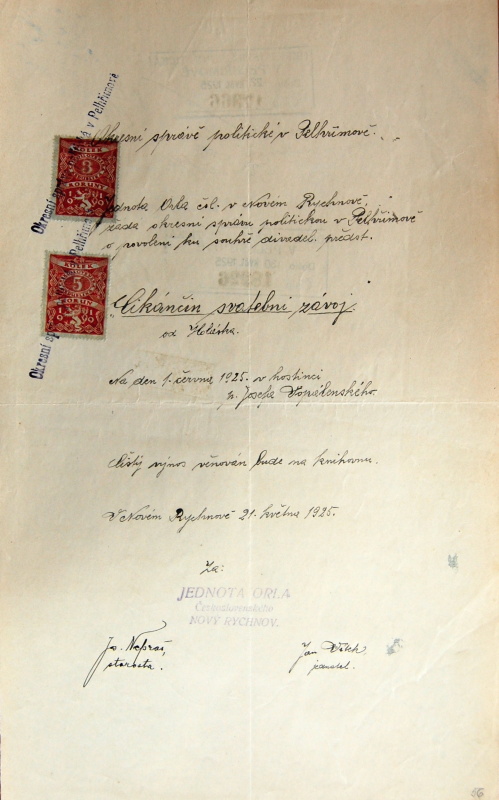 Okresní správě politické v Pelhřimově.
Okresní správa
v Pelhřimově
KOLEK
3
KORUNY
1919
Jednota Orla čsl. v Novém Rychnově,
žádá okresní správu politickou v Pelhřimově
o povolení ku souhře divadel. předst.
KOLEK
5
KORUN
1919
Okresní
Pelhřimově
"Cikánčin svatební závoj.
od
Na den 1. června 1925. v hostinci
p. Josefa Vopálenského.
Čistý výnos věnován bude na knihovnu.
V Novém Rychnově 21. května 1925.
Za:
JEDNOTA ORLA
Československého
NOVÝ RYCHNOV.
starosta.
Jan
jednatel.
56